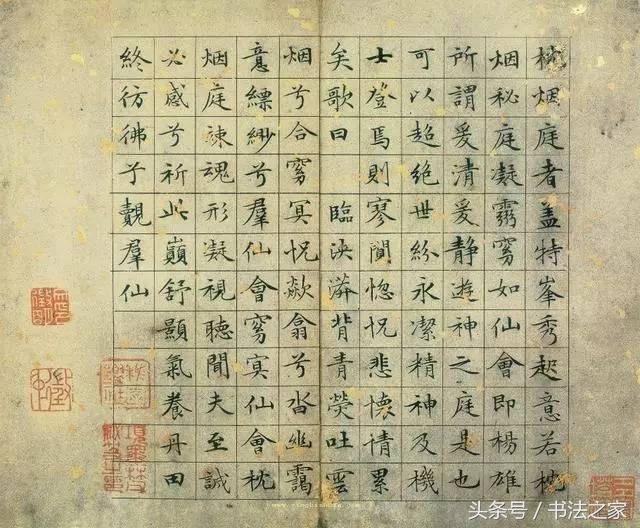 枕烟庭者盖特峯秀起意若枕
烟秘庭凝霛窅如仙會即楊雄
所謂爰清爰靜遊神之庭是也
可以超絶世紛永潔精神及機
士登焉則寥闃惚怳悲懷情累
矣歌曰 臨泱漭背青熒吐雲
烟兮合窅冥怳欻翕兮沓幽靄
意縹緲兮羣仙會窅冥仙會枕
烟庭竦魂形凝視聽聞夫至誠
必感兮祈此巔舒顥氣養丹田
終彷彿乎覿羣仙
头条号 / 书法之家